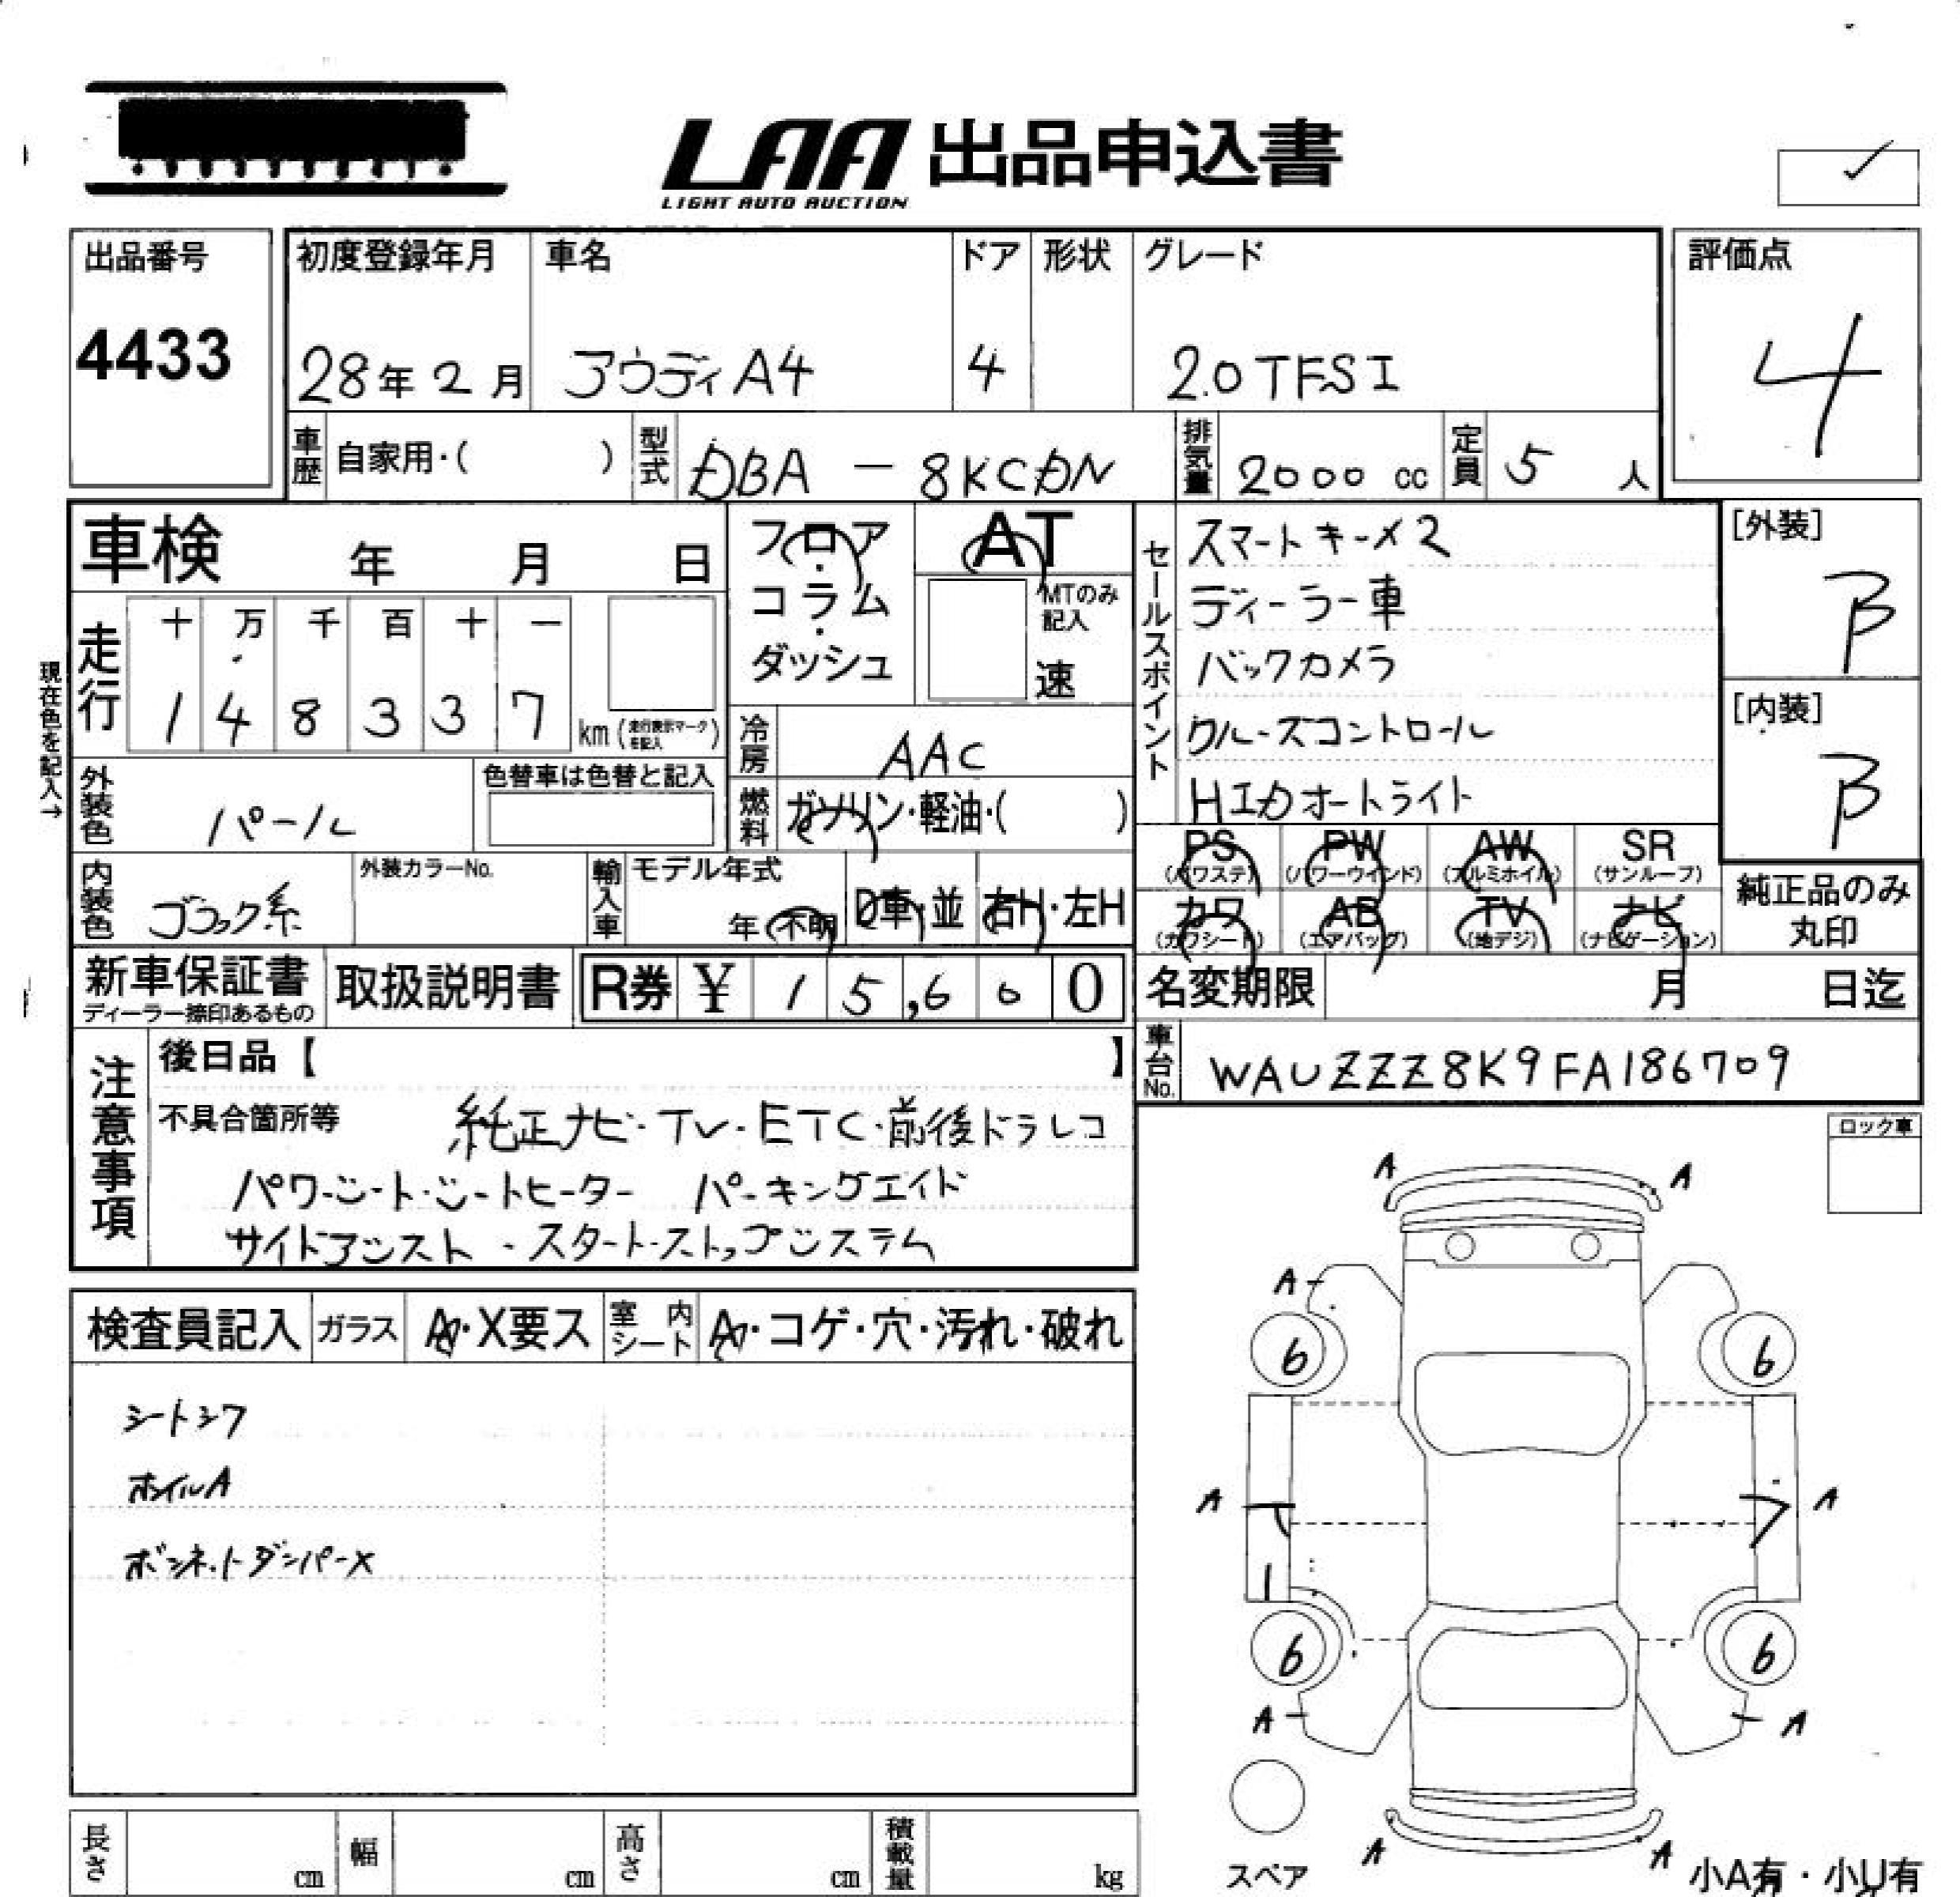 LAA 出品申込書
LIGHT AUTO AUCTION
出品番号
4433
初度登録年月
28年2月
車名
アウディA4
ドア
4
形状
グレード
2.0TFSI
評価点
4
車歴 自家用・( )
型式 DBA - 8KCDN
排気量 2000 cc
定員 5 人
車検 年 月 日
フロア・コラム・ダッシュ
AT
MTのみ記入
速
セールスポイント
スマートキーメ2
ディーラー車
バックカメラ
クルーズコントロール
HIDオートライト
[外装]
B
[内装]
B
現在色を記入→
走行
十 万 千 百 十 一
1 4 8 3 3 7 km (走行表示マークを記入)
冷房 AAC
外装色 パール
色替車は色替と記入
燃料 ガソリン・軽油・( )
内装色 ブラック系
外装カラーNo.
輸入車
モデル年式
年 不明
D車・並
右H・左H
PS (パワステ)
PW (パワーウインド)
AW (アルミホイル)
SR (サンルーフ)
カワ (カワシート)
AB (エアバッグ)
TV (地デジ)
ナビ (ナビゲーション)
純正品のみ丸印
新車保証書
ディーラー捺印あるもの
取扱説明書
R券 ¥ 15,600
名変期限 月 日迄
車台No. WAUZZZ8K9FA186709
注意事項
後日品【 】
不具合箇所等 純正ナビ・TV・ETC・前後ドラレコ
パワーシート・シートヒーター パーキングエイド
サイドアシスト・スタートストップシステム
ロック車
検査員記入
ガラス A・X要ス
室内シート A・コゲ・穴・汚れ・破れ
シートシワ
ホイルA
ボンネットダンパーX
A A
A
6 6
A A
6 6
A A
A A
スペア
小A有・小U有
長さ cm
幅 cm
高さ cm
積載量 kg